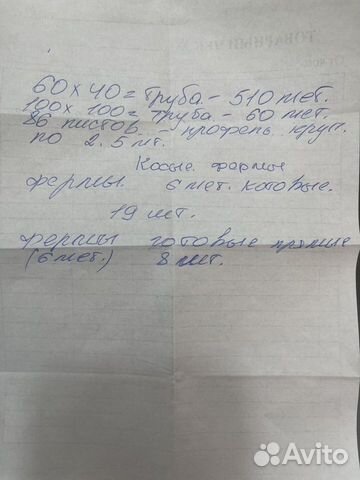 ТОВАРНЫЙ ЧЕК
60 х 40 = труба. - 510 мет.
100 х 100 = труба - 60 мет.
86 листов. - профель круп.
по 2.5 мт.
Косые фермы
фермы. 6 мет. котовые.
19 шт.
фермы готовые прямые
(6 мет.) 8 шт.
Avito